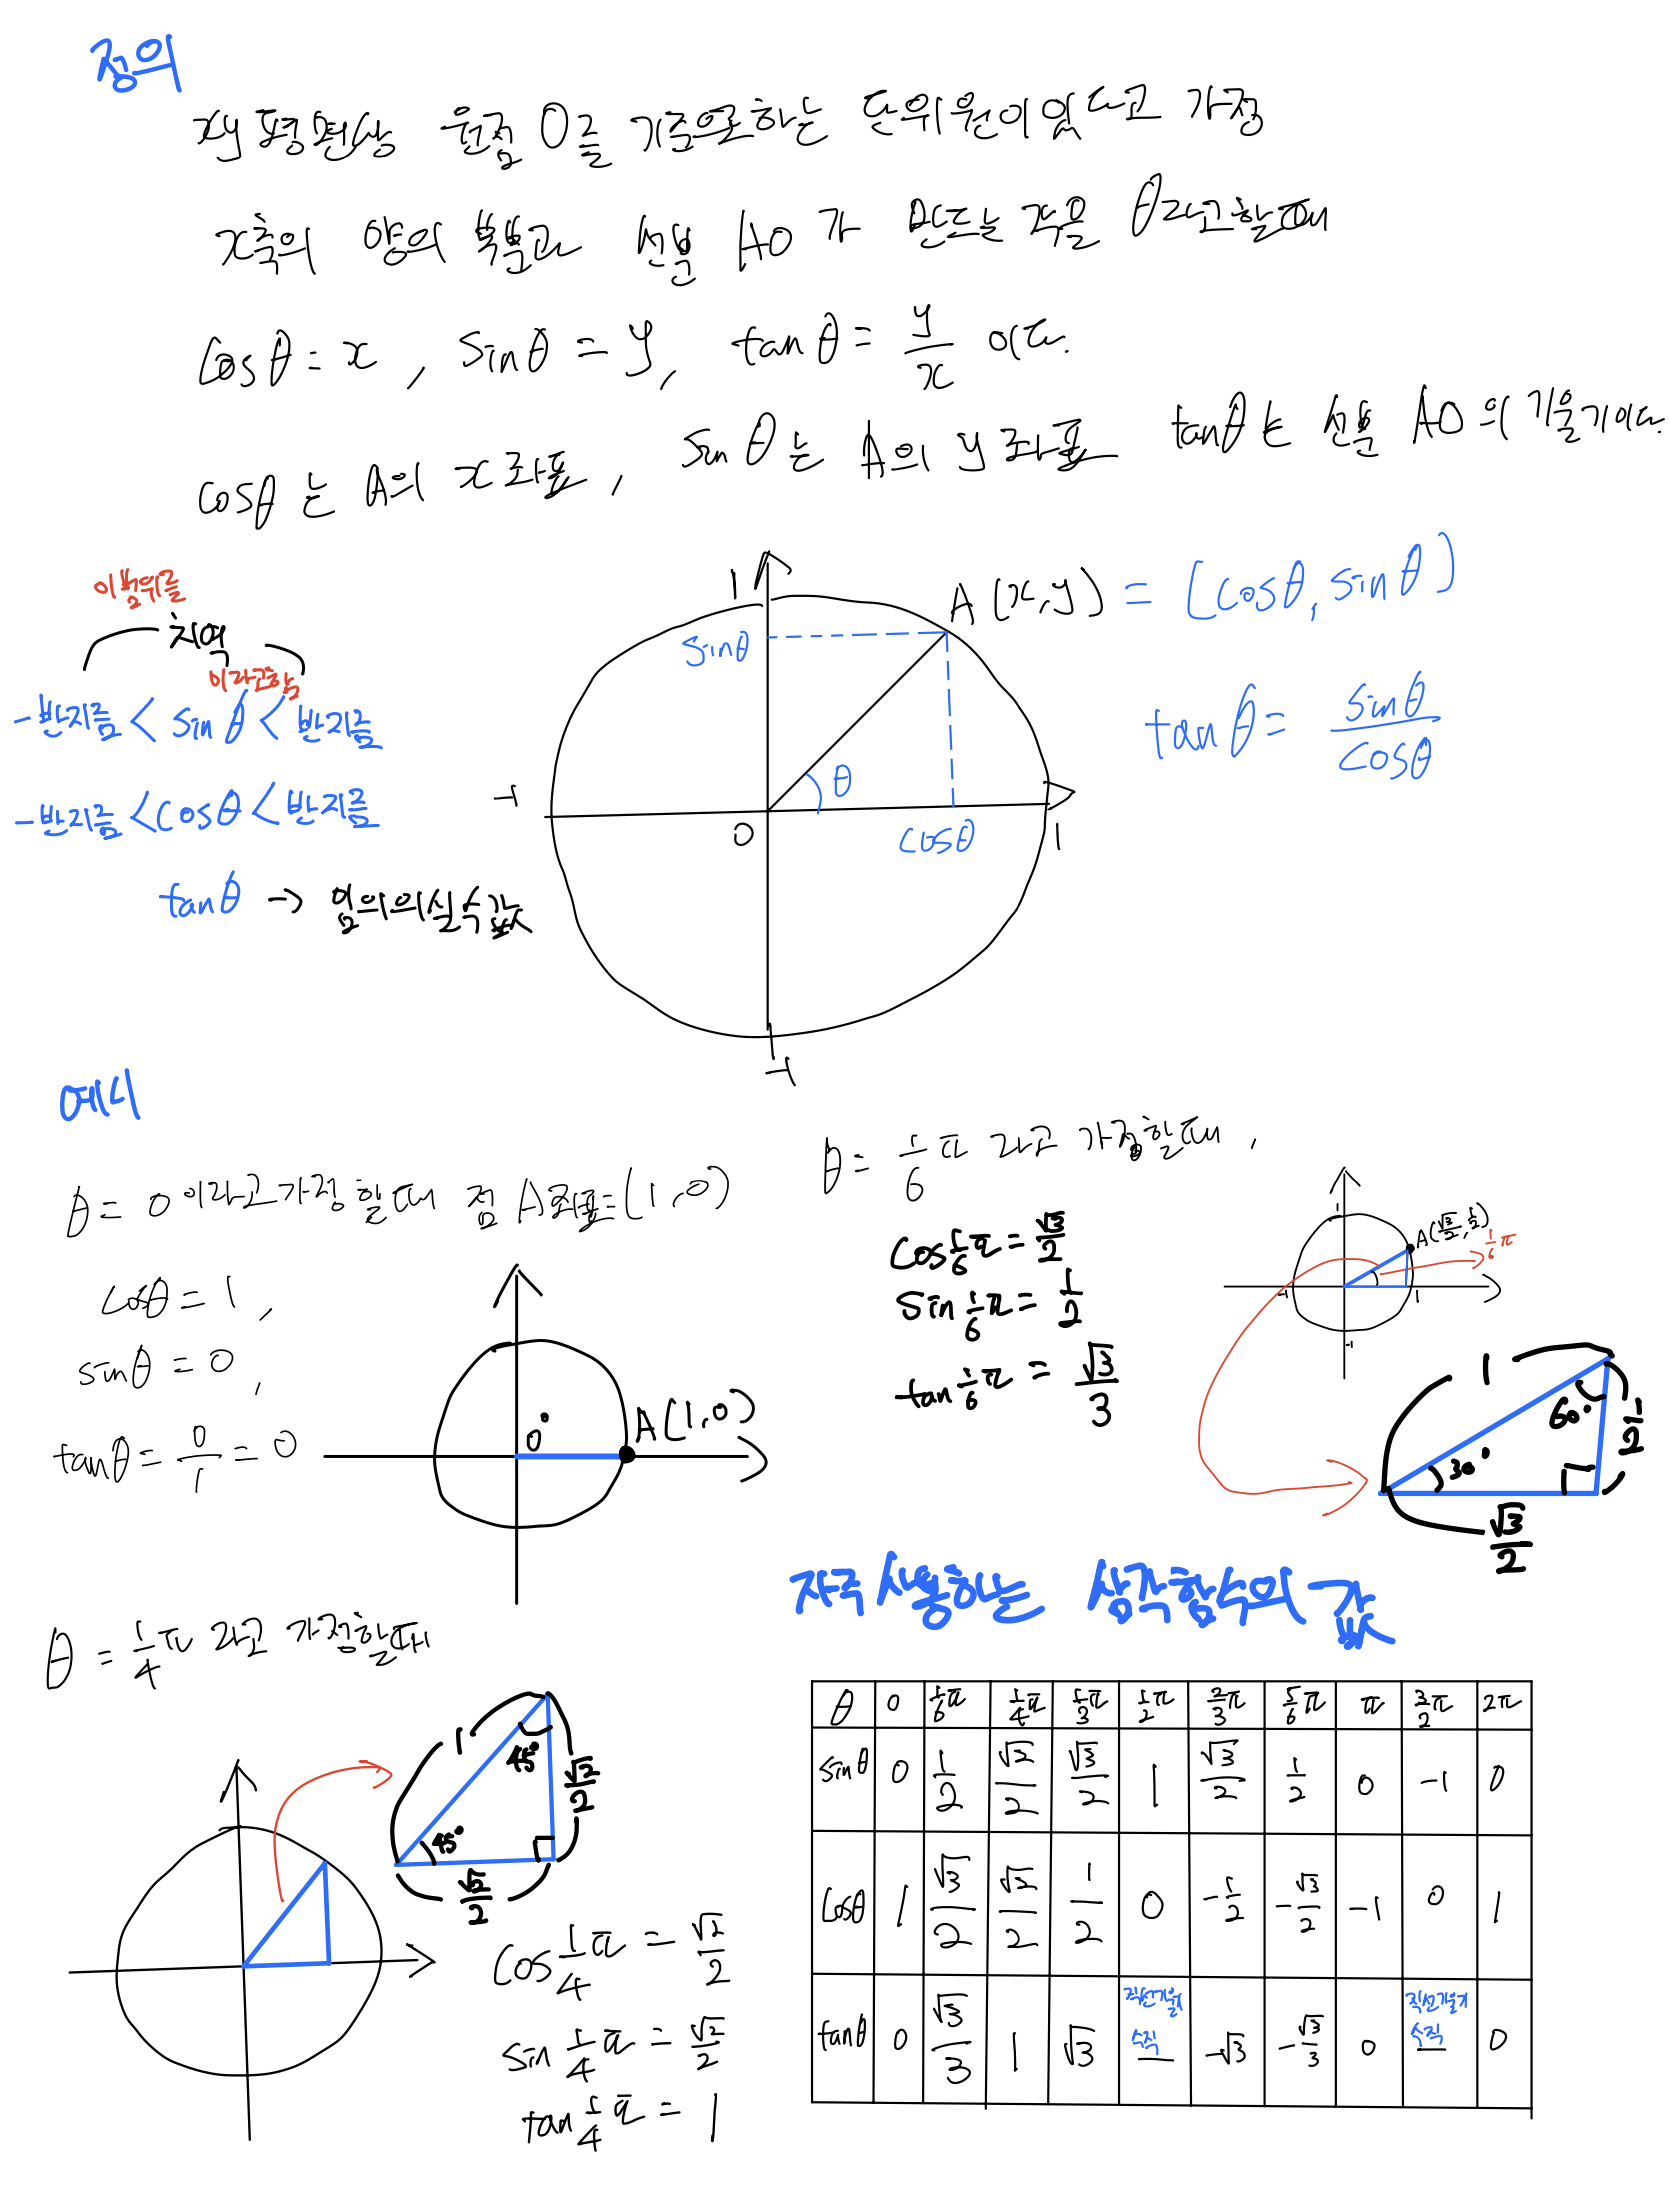 정의
xy 평면상 원점 O를 기준으로하는 단위원이 있다고 가정
x축의 양의 부분과 선분 AO 가 만드는 각을 θ라고할때
cosθ = x , sinθ = y, tanθ = y/x 이다.
cosθ 는 A의 x 좌표 , sin θ 는 A의 y 좌표 tanθ 는 선분 AO 의 기울기이다
이 범위를
치역
이라고함
-반지름 < sin θ < 반지름
-반지름 < cosθ < 반지름
tanθ -> 임의의실수값
1
A (x,y) = (cosθ, sinθ)
sinθ
tanθ = sinθ/cosθ
θ
-1
0
cosθ
1
-1
예시
θ = 0 이라고가정 할때 점 A좌표=(1,0)
cosθ = 1 ,
sinθ = 0 ,
tanθ = 0/1 = 0
0°
A(1,0)
θ = 1/6 π 라고 가정할때 ,
cos 1/6 π = √3/2
sin 1/6 π = 1/2
tan 1/6 π = √3/3
1
A(√3/2, 1/2)
1/6 π
-1
1
-1
1
60°
1/2
30°
√3/2
θ = 1/4 π 라고 가정할때
1
45°
√2/2
45°
√2/2
cos 1/4 π = √2/2
sin 1/4 π = √2/2
tan 1/4 π = 1
자주 사용하는 삼각함수의 값
θ 0 1/6π 1/4π 1/3π 1/2π 2/3π 5/6π π 3/2π 2π
sinθ 0 1/2 √2/2 √3/2 1 √3/2 1/2 0 -1 0
cosθ 1 √3/2 √2/2 1/2 0 -1/2 -√3/2 -1 0 1
tanθ 0 √3/3 1 √3 직선기울기 수직 - -√3 -√3/3 0 직선기울기 수직 - 0